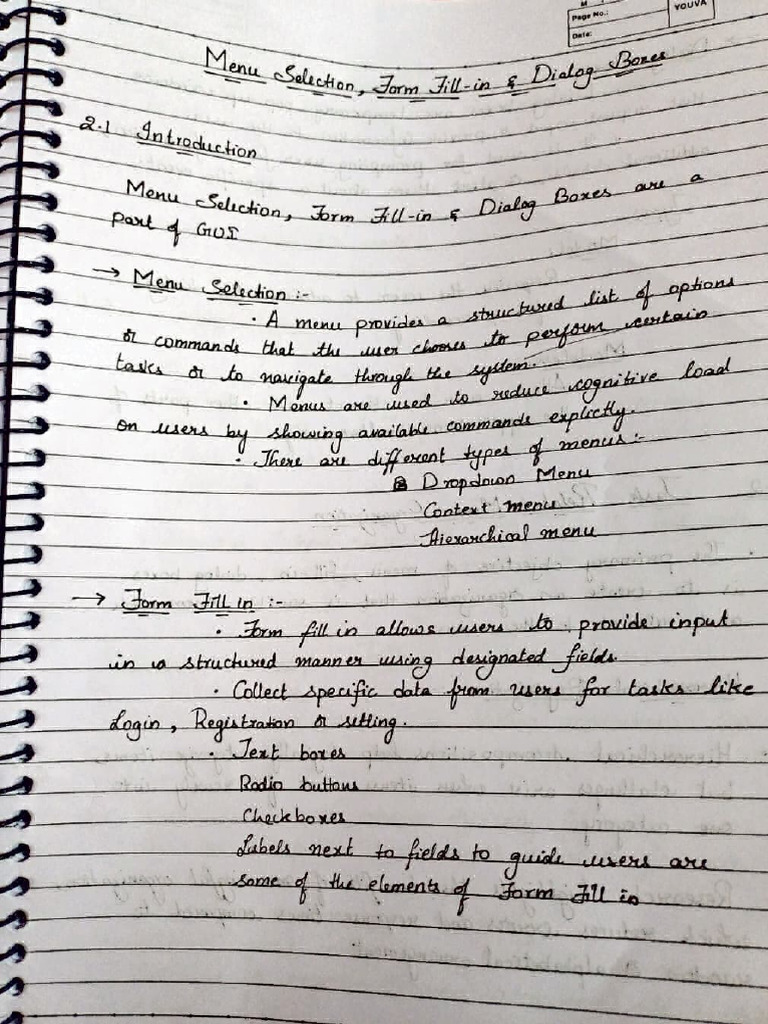 Page No.:
Date:
YOUVA
Menu Selection, Form Fill-in & Dialog Boxes
2.1 Introduction
Menu Selection, Form Fill-in & Dialog Boxes are a
part of GUI
→ Menu Selection :-
• A menu provides a structured list of options
or commands that the user chooses to perform certain
tasks or to navigate through the system.
• Menus are used to reduce cognitive load
on users by showing available commands explictly.
• There are different types of menus :-
Dropdown Menu
Context menu
Hierarchical menu
→ Form Fill in :-
• Form fill in allows users to provide input
in a structured manner using designated fields.
• Collect specific data from users for tasks like
Login, Registration or setting.
• Text boxes
Radio buttons
Checkboxes
Labels next to fields to guide users are
some of the elements of Form Fill in